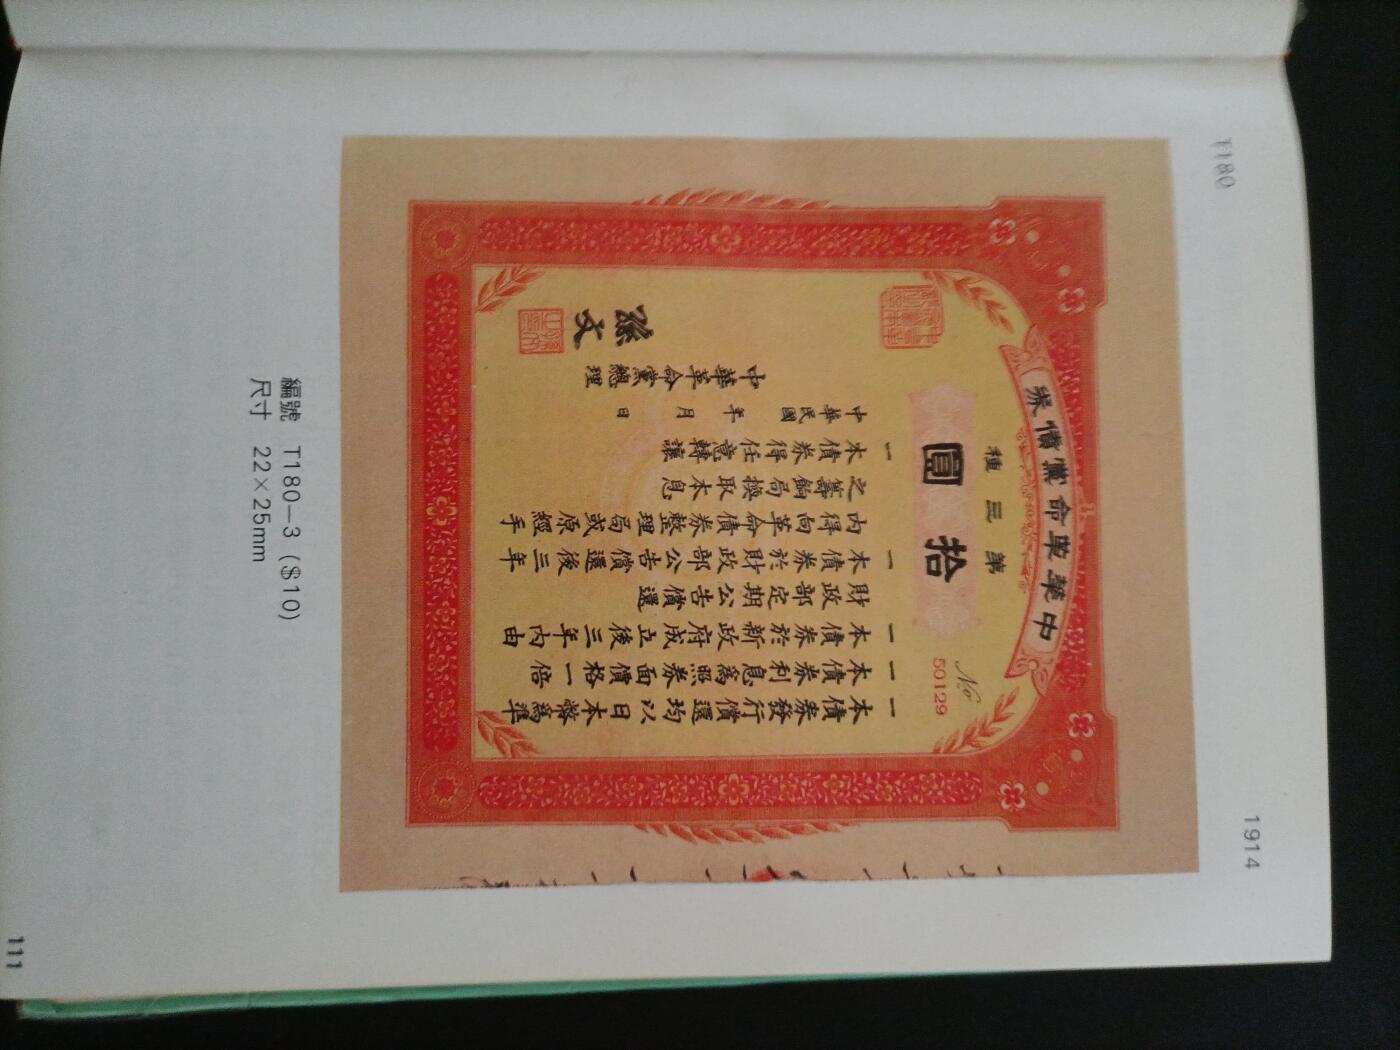 T180
1914
中華革命黨債券
第三種
拾圓
No 50129
一本債券發行償還均以日本幣爲準
一本債券利息爲照券面價格一倍
一本債券於新政府成立後三年內由
財政部定期公告償還
一本債券於財政部公告償還後三年
內得向革命債券整理局或原經手
之籌餉局換取本息
一本債券得任意轉讓
中華民國 年 月 日
中華革命黨總理
孫文
編號 T180－3 ($10)
尺寸 22×25mm
111